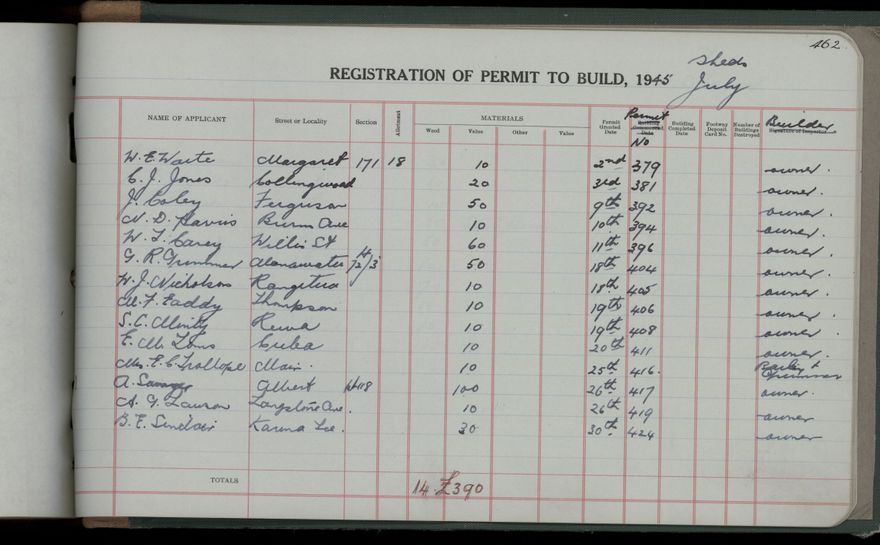 462
Sheds
REGISTRATION OF PERMIT TO BUILD, 1945 July
NAME OF APPLICANT Street or Locality Section Allotment MATERIALS Wood Value Other Value Permit Granted Date Building Commenced Date Permit No Building Completed Date Footway Deposit Card No. Number of Buildings Destroyed Signature of Inspector Builder
W. E. Waite Margaret 171 18 10 2nd 379 owner.
C. J. Jones Collingwood 20 3rd 381 owner.
J. Coley Ferguson 50 9th 392 owner.
N. D. Harris Burns Ave 10 10th 394 owner.
W. J. Carey Willis St 60 11th 396 owner.
G. R. Grummer 72/3 50 18th 404 owner.
W. J. Nicholson Rangitira 10 18th 405 owner.
M. F. Eaddy Thompson 10 19th 406 owner.
S. C. Minty Rewa 10 19th 408 owner.
E. M. Cuba 10 20th 411 owner.
Mrs. E. C. Trollope Main. 10 25th 416. Bailey +
A. Savage Albert 118 100 26th 417 owner.
A. G. Lawson Langstone Ave. 10 26th 419 owner
B. E. Sinclair Karina Tce. 30 30th 424 owner
TOTALS 14 £390